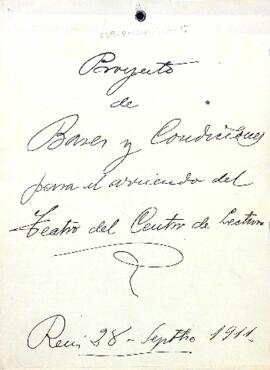 Proyecto
de
Bases y Condiciones
para el arriendo del
Teatro del Centro de Lectura
Reus 28 - Septbre 1911